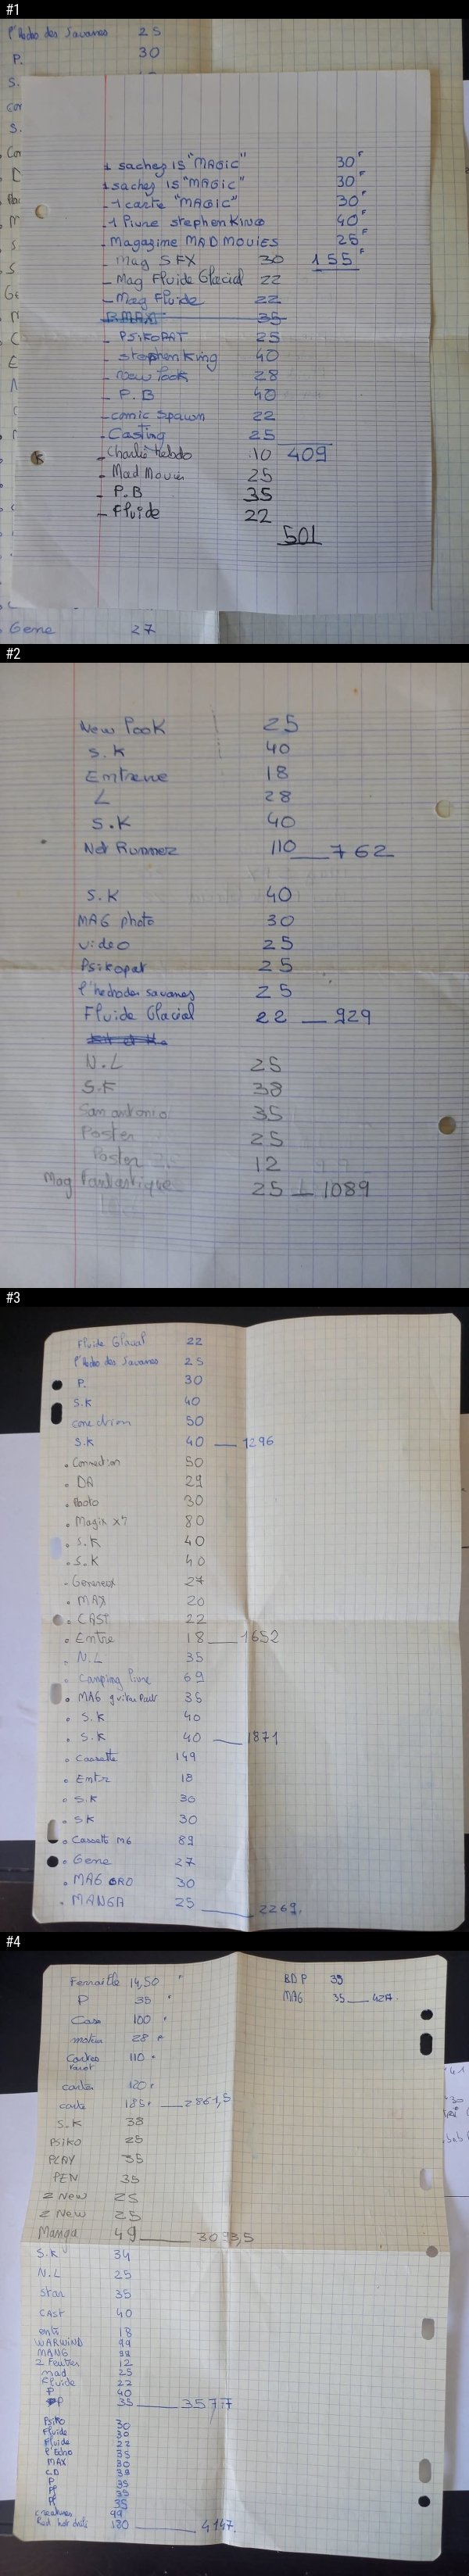 #1
l'Echo des Savanes 25
P. 30
S.
con
S.
1 sachez IS "MAGIC" 30F
1 sachez IS "MAGIC" 30F
-1 carte "MAGIC" 30F
-1 livre stephen KING 40F
-Magazine MAD MOVIES 25F
- Mag SFX 30 155F
- Mag Fluide Glacial 22
- Mag Fluide 22
B.MAX 35
- PSIKOPAT 25
- stephen king 40
- New look 28
- P.B 40
-comic spawn 22
-Casting 25
-Charlie hebdo 10 409
- Mad Movie 25
- P.B 35
- Fluide 22
501
Gene 27
#2
New look 25
S.K 40
Entrevue 18
L 28
S.K 40
Net Runner 110 __ 762
S.K 40
MAG photo 30
video 25
Psikopat 25
l'hechodes savanes 25
Fluide Glacial 22 __ 929
N.L 25
S.F 38
San antonio 35
Poster 25
Poster 12
Mag Fantastique 25 __ 1089
#3
Fluide Glacial 22
l'Echo des Savanes 25
P. 30
S.K 40
conection 50
S.K 40 __ 1296
. Connection 50
. DA 29
. Photo 30
. Magix x7 80
. S.K 40
. S.K 40
- Genereux 27
. MAX 20
. CAST 22
. Entre 18 __ 1652
. N.L 35
. Camping livre 69
. MAG guitare Part 35
. S.K 40
. S.K 40 __ 1871
. Cassette 149
. Entr 18
. S.K 30
. SK 30
. Cassette M6 89
. Gene 27
. MAG GRO 30
. MANGA 25 __ 2269.
#4
Ferraille 14,50
P 35
Casa 100
moteur 28
Cartes 110
tarot
cartes 120
carte 185 __ 2861,5
S.K 38
PSIKO 25
PLAY 35
PEN 35
2 New 25
2 New 25
Manga 49 __ 3093,5
S.K 34
N.L 25
Star 35
CAST 40
entr 18
WARWIND 99
MANG 99
2 Feutres 12
mad 25
Fluide 22
P 40
P 35 __ 3577
Psiko 30
Fluide 30
Fluide 22
l'Echo 35
MAX 30
CD 39
P 35
P 35
P 35
creatures 99
Red hot chili 120 __ 4147.
BD P 39
MAG 35 __ 4217.